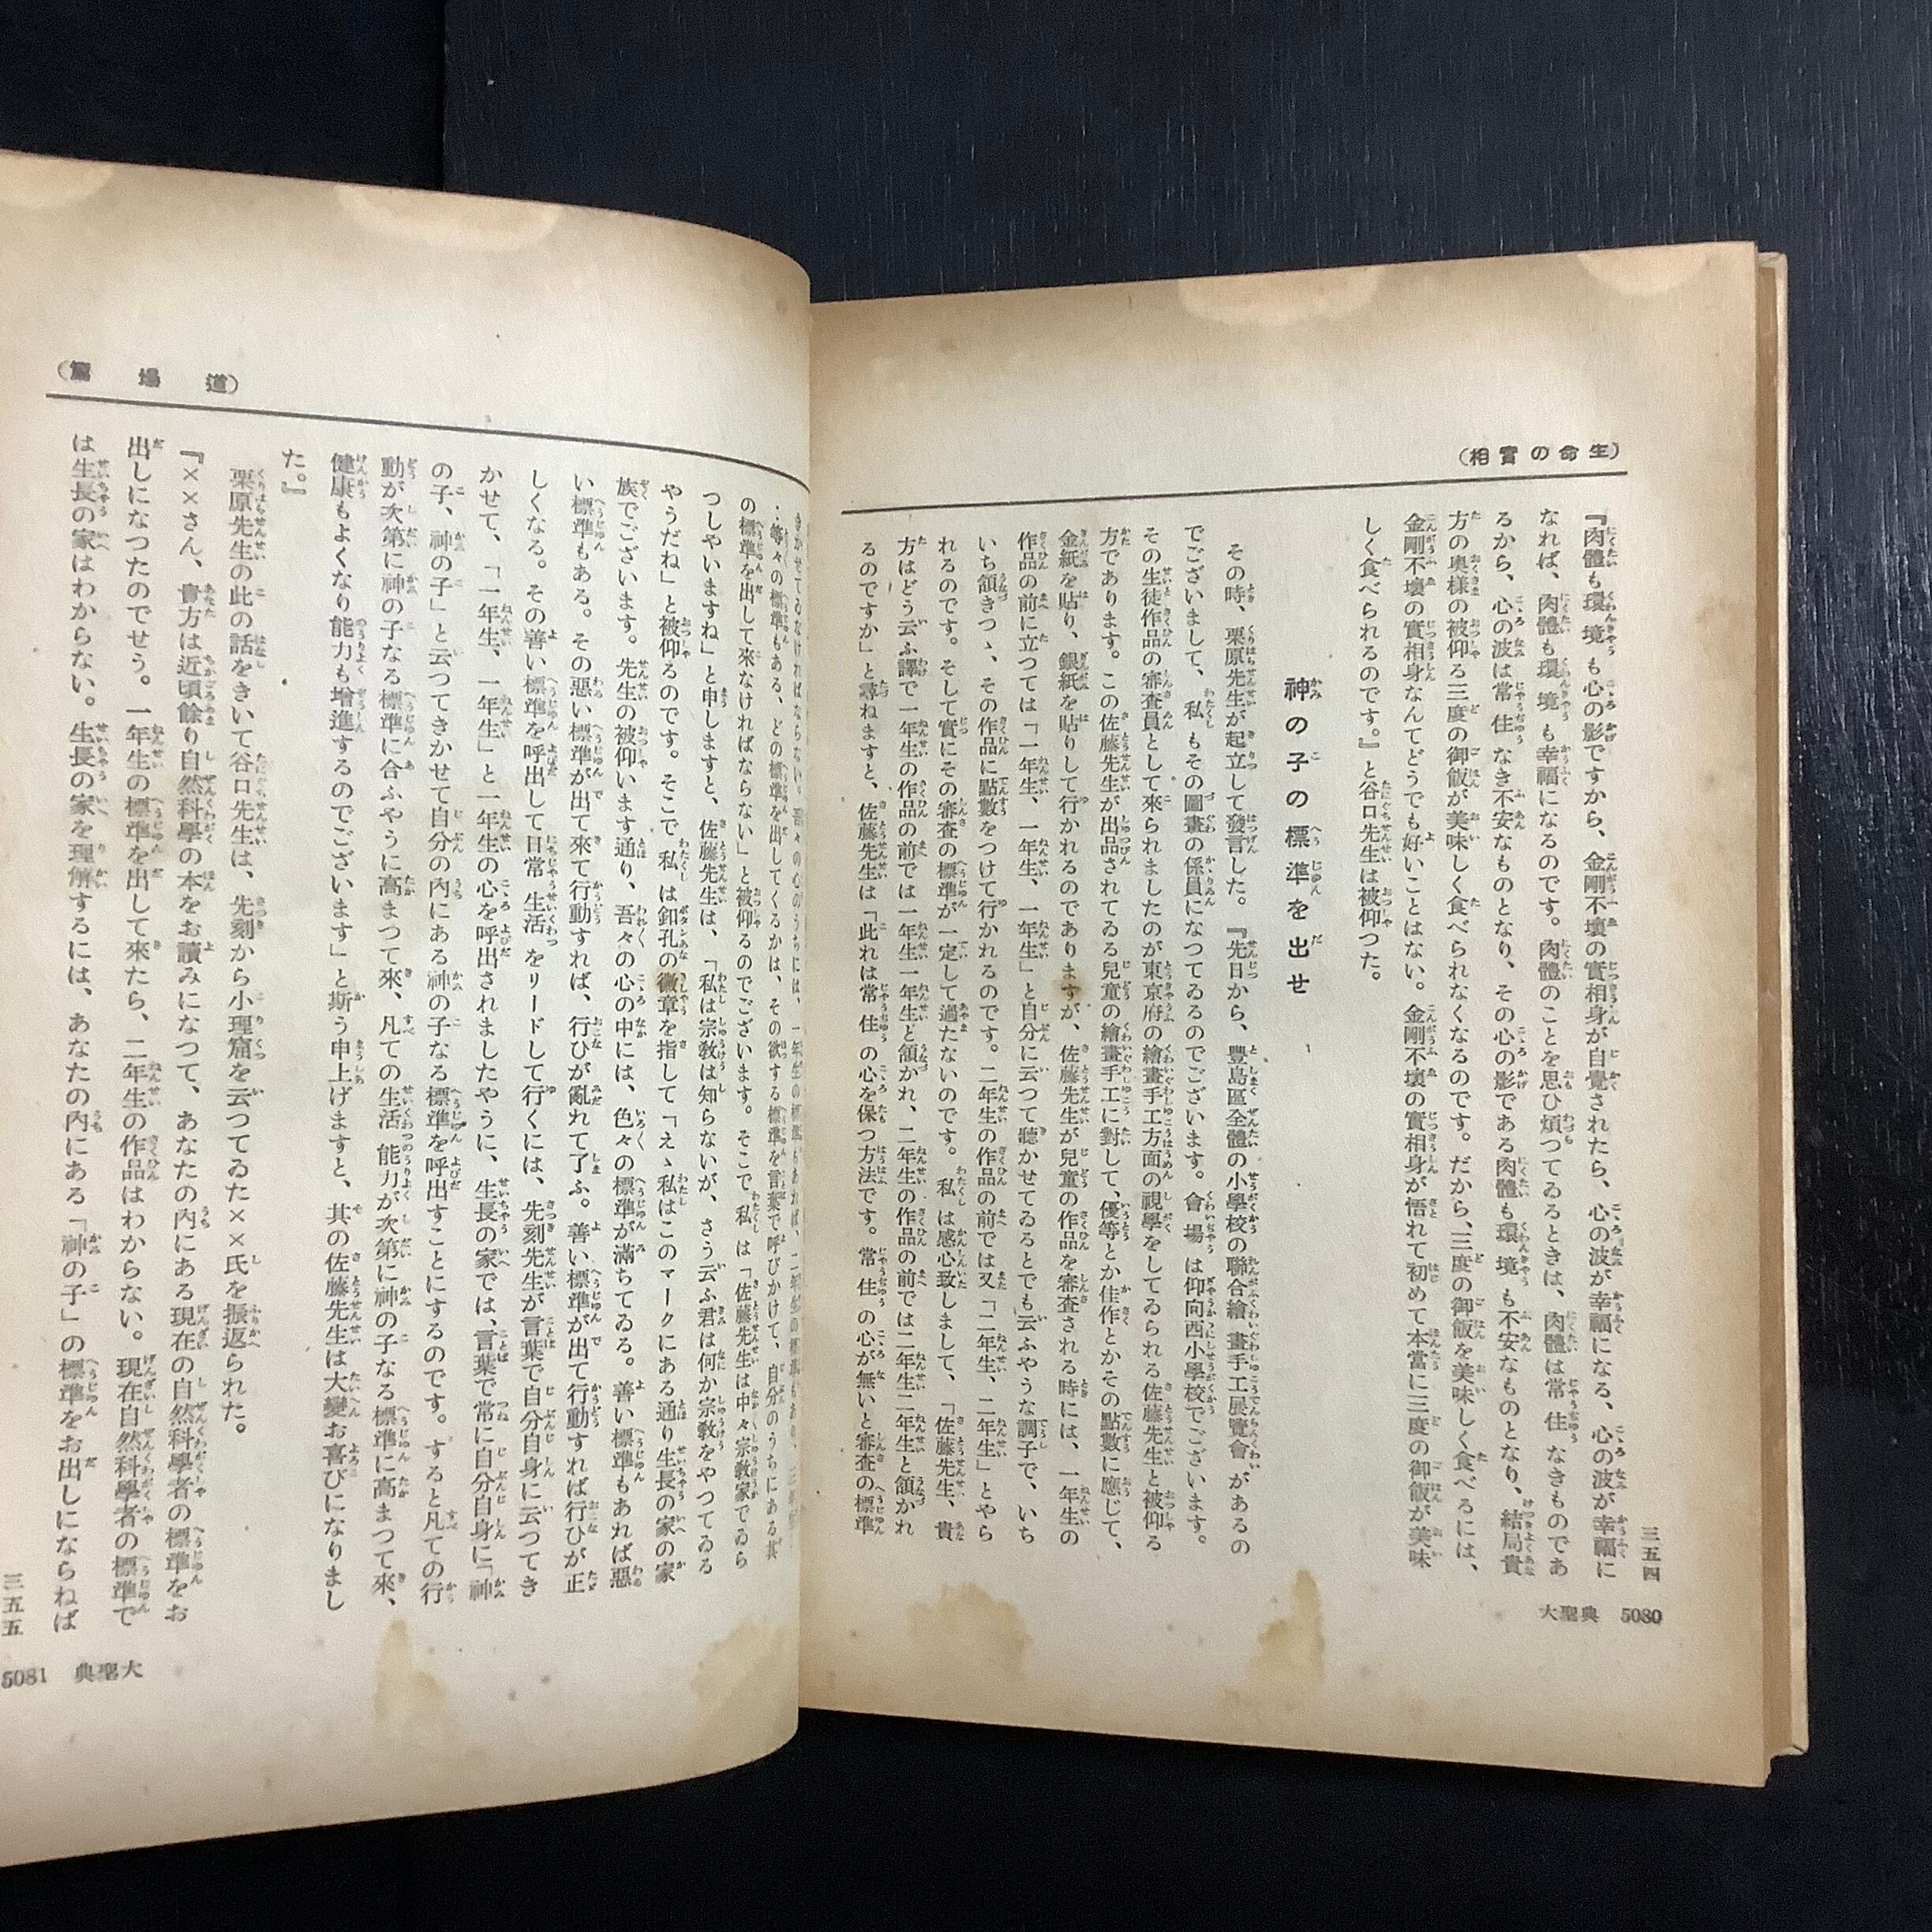 （生命の實相）
『肉體も環境も心の影ですから、金剛不壞の實相身が自覺されたら、心の波が幸福になる、心の波が幸福に
なれば、肉體も環境も幸福になるのです。肉體のことを思ひ煩つてゐるときは、肉體は常住なきものであ
るから、心の波は常住なき不安なものとなり、その心の影である肉體も環境も不安なものとなり、結局貴
方の奥樣の被仰る三度の御飯が美味しく食べられなくなるのです。だから、三度の御飯を美味しく食べるには、
金剛不壞の實相身なんてどうでも好いことはない。金剛不壞の實相身が悟れて初めて本當に三度の御飯が美味
しく食べられるのです。』と谷口先生は被仰つた。
神の子の標準を出せ
その時、栗原先生が起立して發言した。『先日から、豐島區全體の小學校の聯合繪畫手工展覽會があるの
でございまして、私もその圖畫の係員になつてるるのでございます。會場は仰向西小學校でございます。
その生徒作品の審査員として來られましたのが東京府の繪畫手工方面の視學をしてゐられる佐藤先生と被仰る
方であります。この佐藤先生が出品されてゐる兒童の繪畫手工に對して、優等とか佳作とかその點數に應じて、
金紙を貼り、銀紙を貼りして行かれるのでありますが、佐藤先生が兒童の作品を審査される時には、一年生の
作品の前に立つては「一年生、一年生、一年生」と自分に云つて聽かせてゐるとでも云ふやうな調子で、いち
いち頷きつゝ、その作品に點數をつけて行かれるのです。二年生の作品の前では又「二年生、二年生」とやら
れるのです。そして實にその審査の標準が一定して過たないのです。私は感心致しまして、「佐藤先生、貴
方はどう云ふ譯で一年生の作品の前では一年生一年生と頷かれ、二年生の作品の前では二年生二年生と頷かれ
るのですか」と尋ねますと、佐藤先生は「此れは常住の心を保つ方法です。常住の心が無いと審査の標準
三五四
大聖典 5080
（道場篇）
の標準を出して來なければならない」と被仰るのでございます。そこで私は「佐藤先生は中々宗教家でゐら
つしやいますね」と申しますと、佐藤先生は、「私は宗教は知らないが、さう云ふ君は何か宗教をやつてゐる
やうだね」と被仰るのです。そこで私は釦孔の徽章を指して「えゝ私はこのマークにある通り生長の家の家
族でございます。先生の被仰います通り、吾々の心の中には、色々の標準が滿ちてゐる。善い標準もあれば惡
い標準もある。その惡い標準が出て來て行動すれば、行ひが亂れて了ふ。善い標準が出て行動すれば行ひが正
しくなる。その善い標準を呼出して日常生活をリードして行くには、先刻先生が言葉で自分自身に云つてき
かせて、「一年生、一年生」と一年生の心を呼出されましたやうに、生長の家では、言葉で常に自分自身に「神
の子、神の子」と云つてきかせて自分の内にある神の子なる標準を呼出すことにするのです。すると凡ての行
動が次第に神の子なる標準に合ふやうに高まつて來、凡ての生活能力が次第に神の子なる標準に高まつて來、
健康もよくなり能力も增進するのでございます」と斯う申上げますと、其の佐藤先生は大變お喜びになりまし
た。』
栗原先生の此の話をきいて谷口先生は、先刻から小理窟を云つてゐた××氏を振返られた。
『××さん、貴方は近頃餘り自然科學の本をお讀みになつて、あなたの内にある現在の自然科學者の標準をお
出しになつたのでせう。一年生の標準を出して來たら、二年生の作品はわからない。現在自然科學者の標準で
は生長の家はわからない。生長の家を理解するには、あなたの内にある「神の子」の標準をお出しにならねば
三五五
大聖典 5081